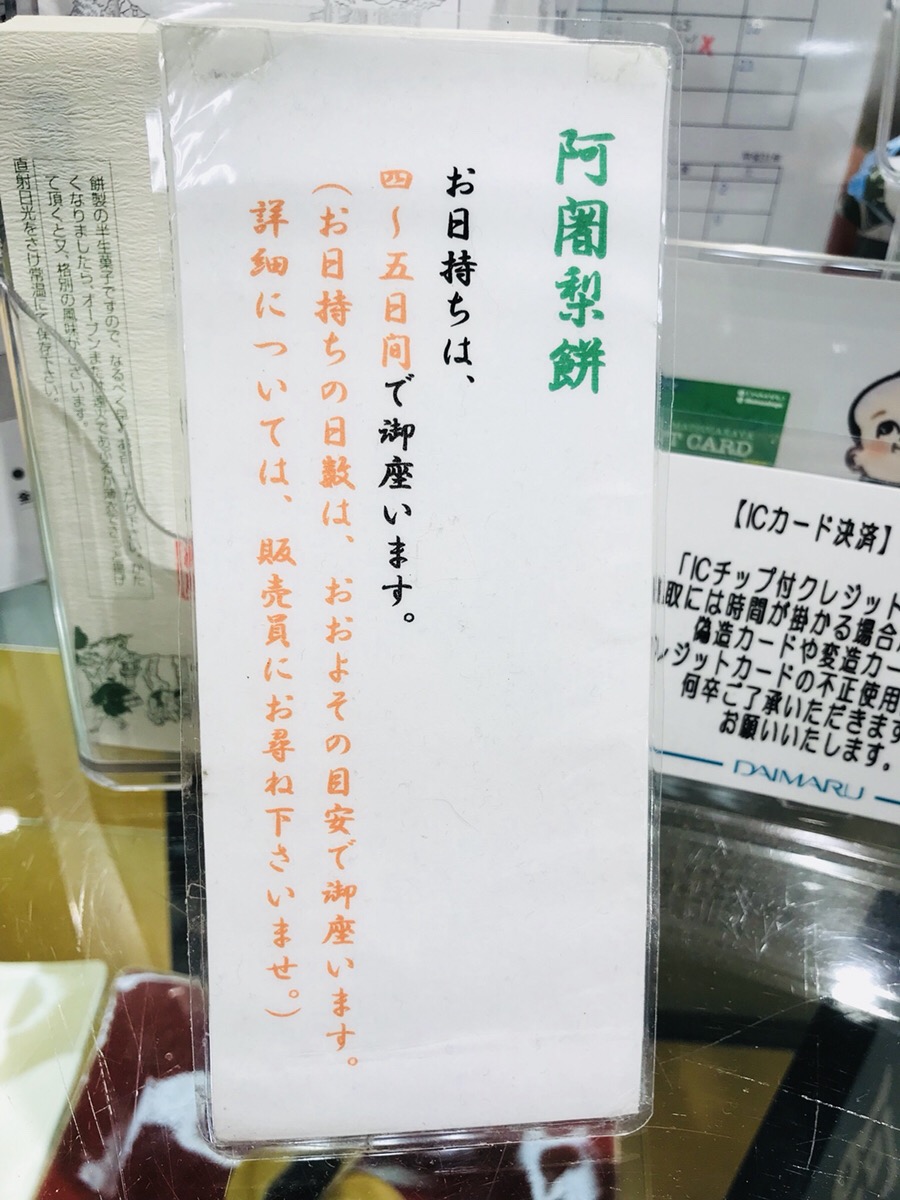 阿闍梨餅
お日持ちは、
四～五日間で御座います。
(お日持ちの日数は、おおよその目安で御座います。
詳細については、販売員にお尋ね下さいませ。)
餅製の半生菓子ですので、なるべく
くなりましたら、オーブンまたは
て頂くと又、格別の風味がございます。
直射日光をさけ常温にて保存下さい。
T CARD
【ICカード決済】
「ICチップ付クレジット
取には時間が掛かる場合
偽造カードや変造カー
ジットカードの不正使用
何卒ご了承いただきます
お願いいたします。
DAIMARU